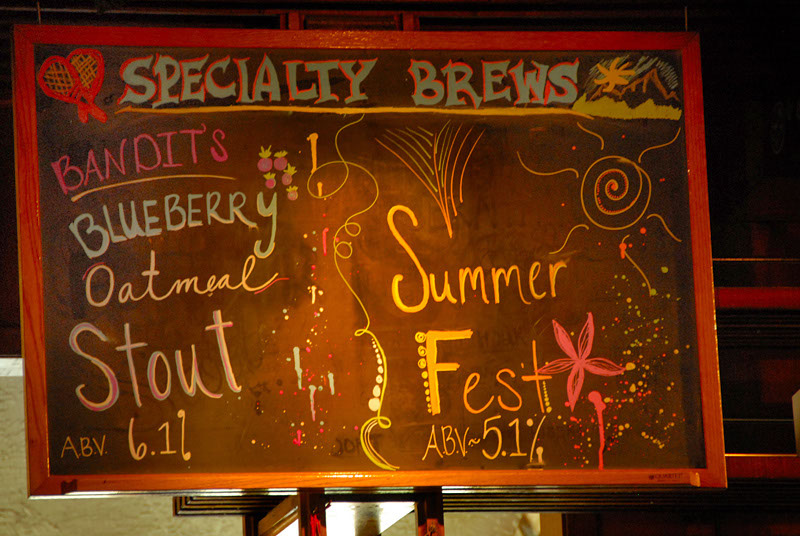 SPECIALTY BREWS
BANDIT'S
BLUEBERRY
Oatmeal
Stout
A.B.V. 6.1%
Summer
Fest
A.B.V~5.1%